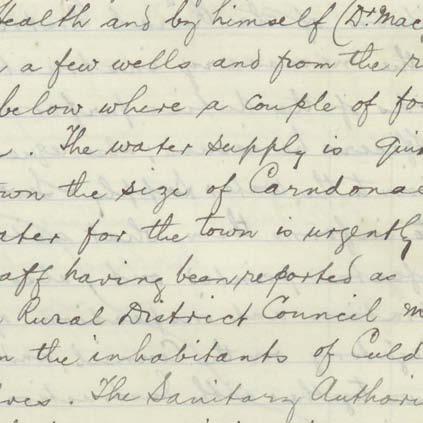 Health and by himself (Dr. Mac
a few wells and from the
below where a couple of
. The water supply is
the size of Carndona
ater for the town is urgently
aff having been reported as
Rural District Council m
the inhabitants of Culd
ves. The Sanitary Authori